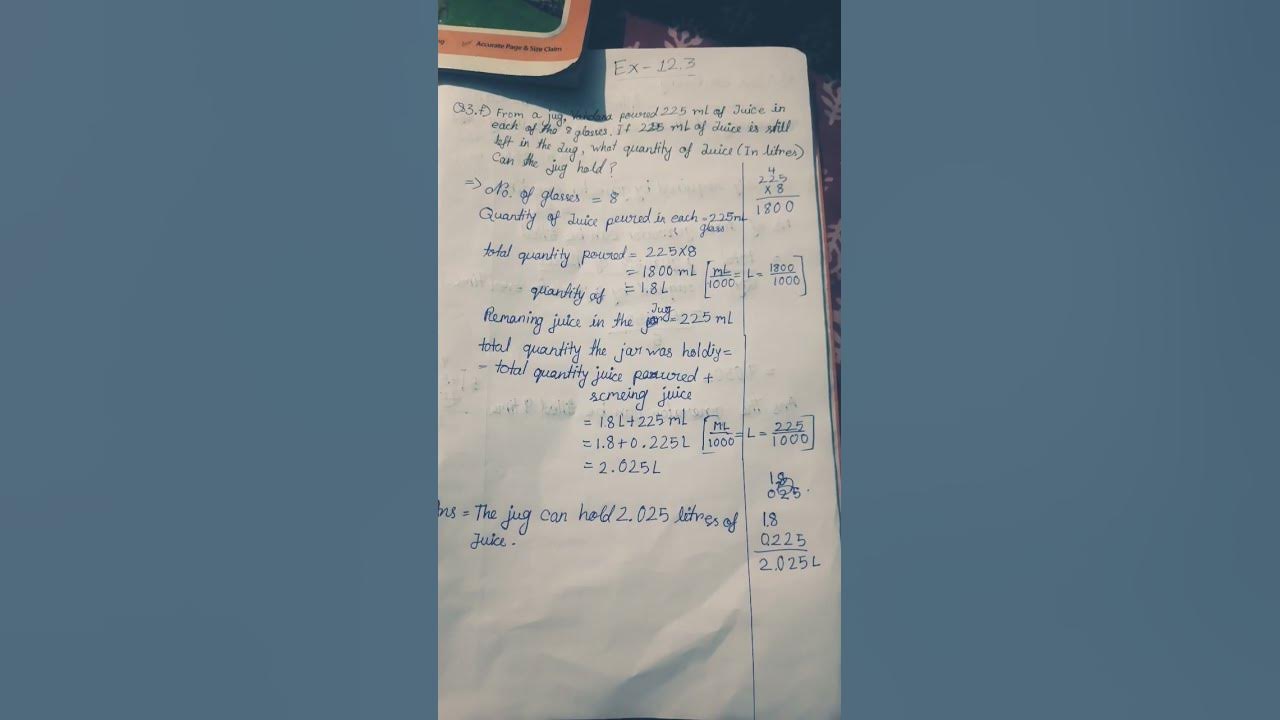 Accurate Page & Size Claim
Ex - 12.3
Q3.f) From a jug, Vandana poured 225 mL of Juice in
each of the 8 glasses. If 225 mL of Juice is still
left in the Jug, what quantity of Juice (In litres)
Can the jug hold?
=> No. of glasses = 8
Quantity of Juice peured in each = 225mL
glass
total quantity poured = 225x8
= 1800 mL [mL/1000 = L = 1800/1000]
quantity of = 1.8L
Remaning juice in the Jug = 225 mL
total quantity the jar was holdiy =
= total quantity juice poured +
juice
= 1.8L+225 mL [ML/1000 = L = 225/1000]
= 1.8+0.225L
= 2.025L
Ans = The jug can hold 2.025 litres of
Juice.
4
225
x 8
1800
1.8
025
1.8
0.225
2.025L